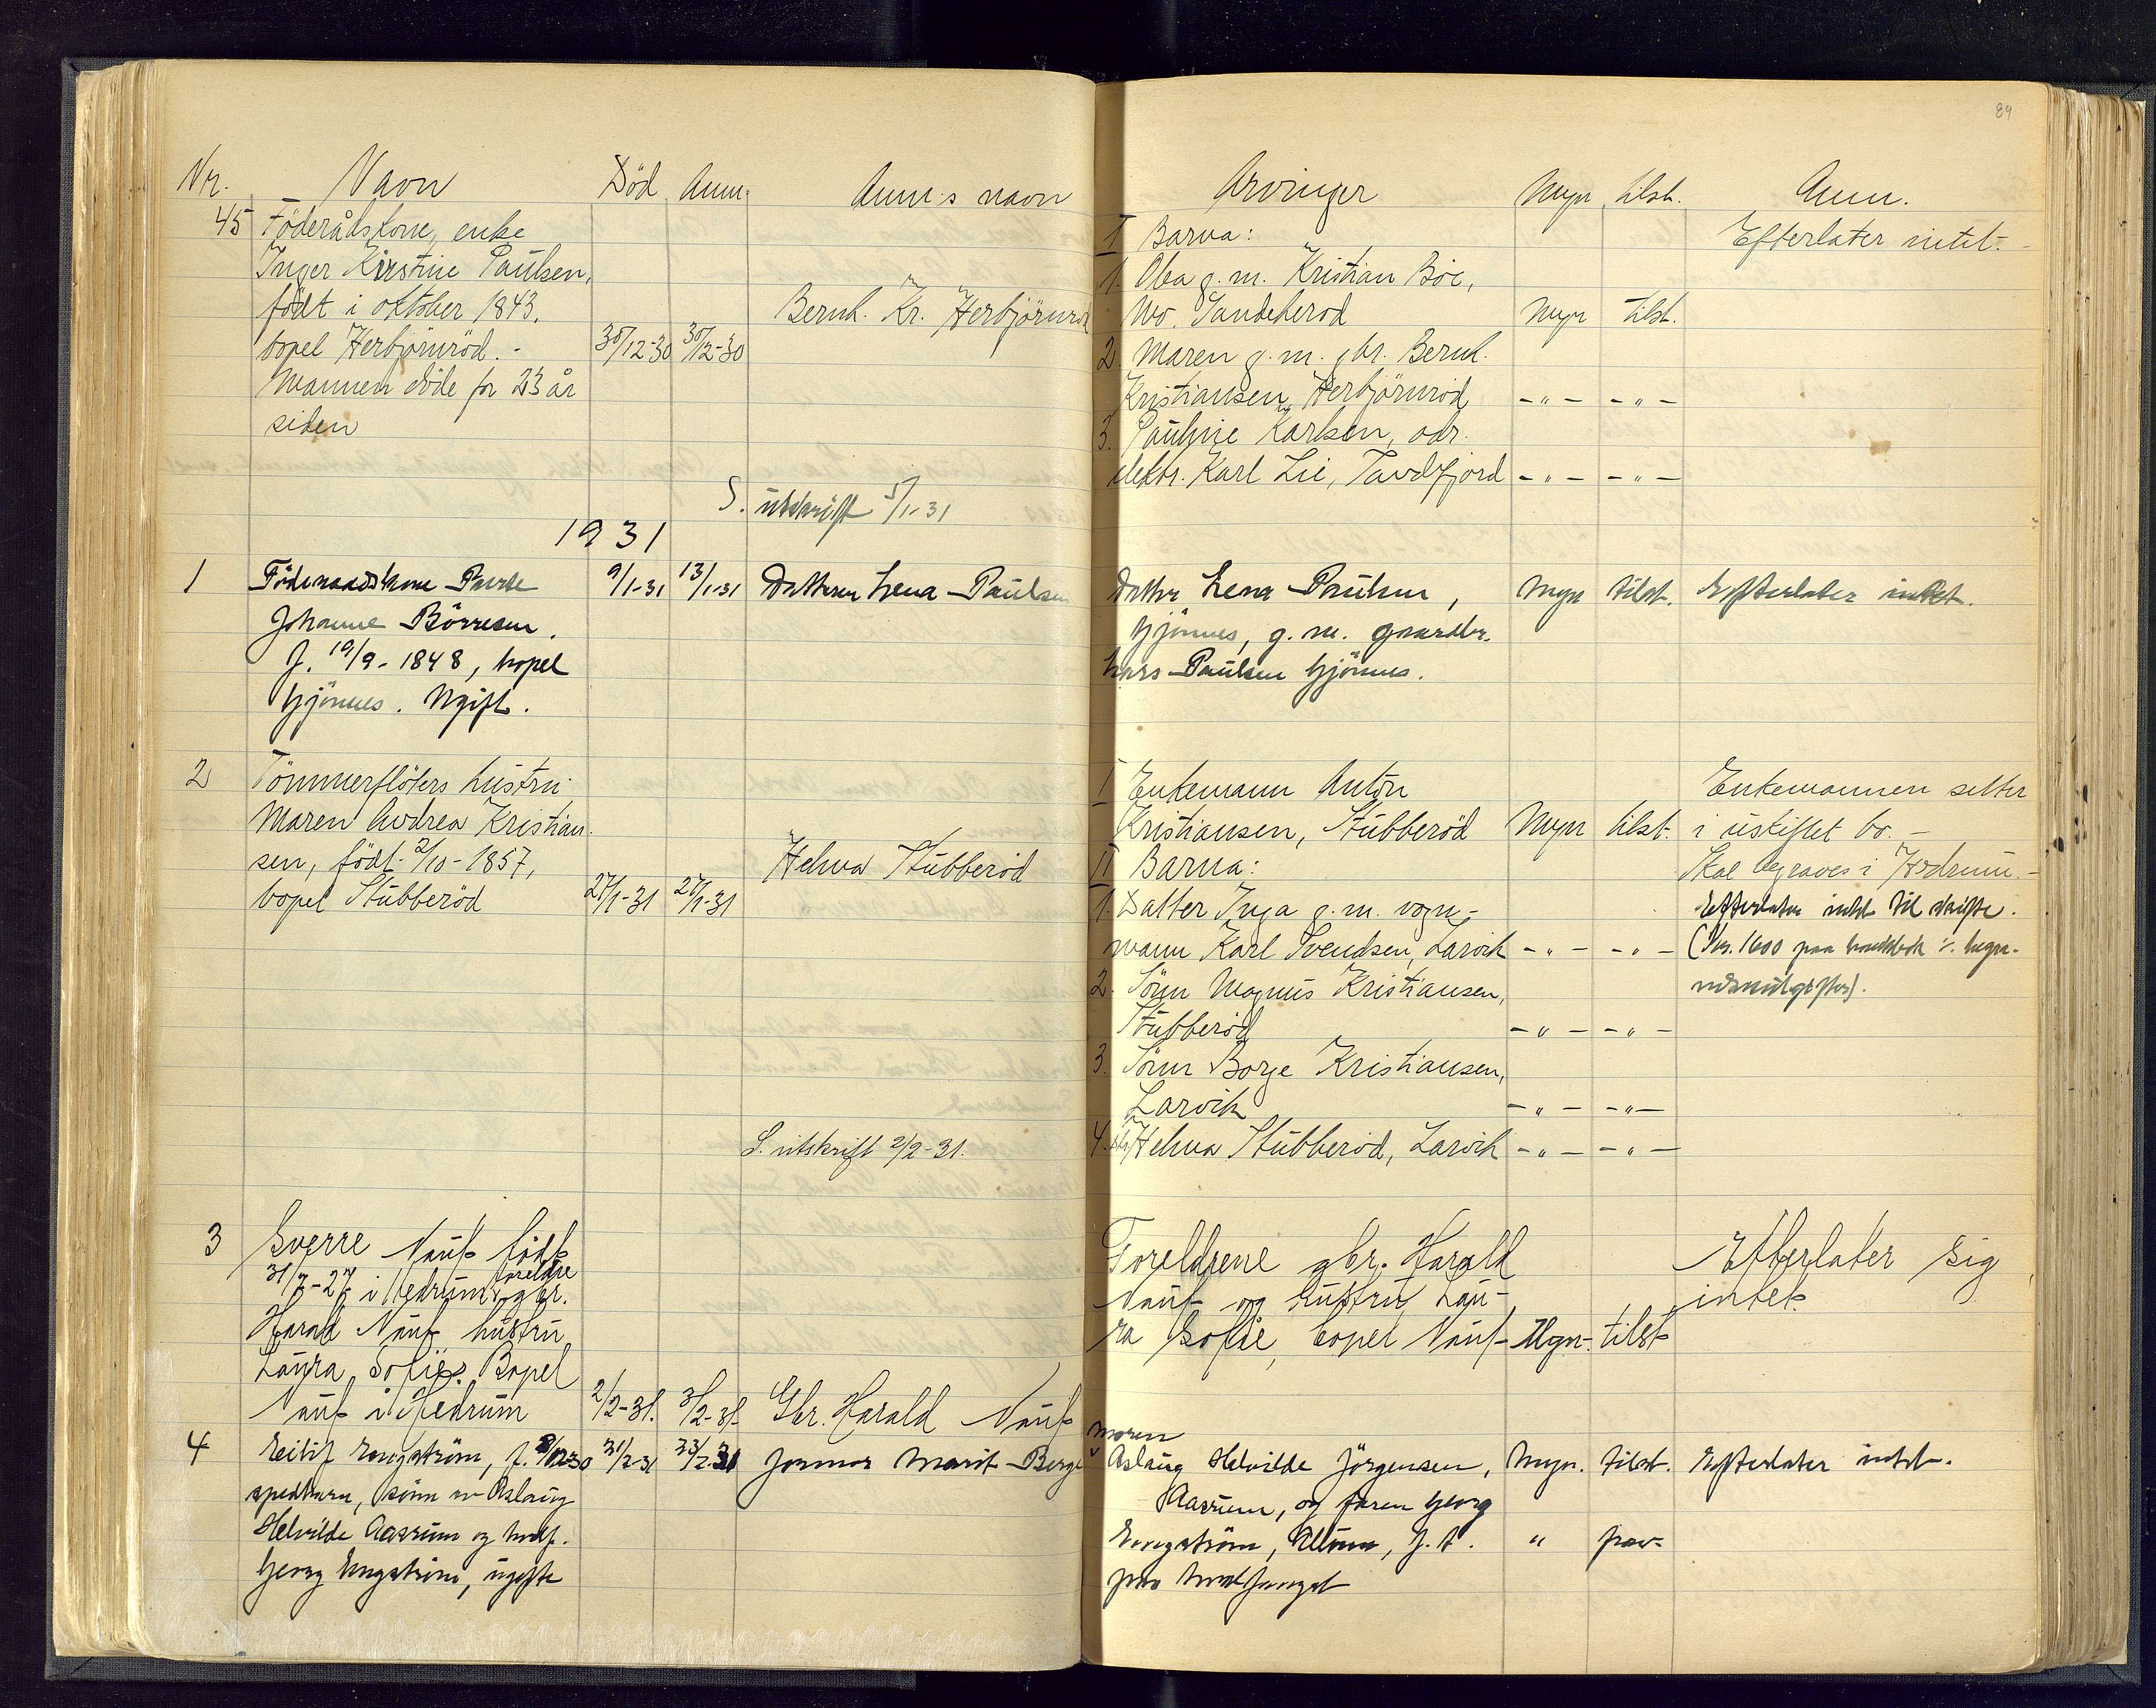 89
Nr. Navn Död Anm. Anm.s navn
45 Föderådskone, enke
Inger Kirstine Paulsen,
födt i oktober 1843,
bopel Herbjörnröd. - 30/12-30 30/12-30 Bernh. Kr. Herbjörnröd
Mannen döde for 23 år
siden
S. utskrift 5/1-31
1931
1 Föderaadskone 9/1-31 13/1-31 Datteren Lena Paulsen
Johanne Börresen.
f. 19/9-1848, bopel
Gjönnes. Ugift.
2 Tömmerflöters hustru
Maren Andrea Kristian-
sen, födt 2/10-1857, Helma Stubberöd
bopel Stubberöd 27/1-31 27/1-31
S. utskrift 2/2-31.
3 Sverre Nauf födt
31/7-27 i Hedrum foreldre gbr.
Harald Nauf hustru
Laura Sofie. Bopel
Nauf i Hedrum 2/2-31. 3/2-31 Gbr. Harald Nauf
4 Eilif Engström, f. 31/2-31 Jormor Marit Berge
spedbarn, sönn av Aslaug
Helvilde Aasrum og hvalf.
Georg Engström, ugifte
Arvinger Myn. tilst. Anm.
I Barna: Efterlater intet. -
1. g. m. Kristian Böe,
Sandeherod Myn tilst.
2 Maren g. m. gbr. Bernh.
Kristiansen, Herbjörnröd - " - - " -
3. Pauline Karlsen, adr.
Karl Lie, - " - - " -
Datter Lena Paulsen, Myn tilst. Efterlater intet.
Gjönnes, g. m. gaardbr.
Lars Paulsen Gjönnes.
I Enkemann Anton Enkemannen sitter
Kristiansen, Stubberöd Myn tilst. i uskiftet bo. -
II Barna: Skal begraves i Hedrum. -
1. Datter Inga g. m. vogn- Efterlater intet til skifte.
mann Karl Svendsen, Larvik - " - - " - (Kr. 1600 paa bankbok ÷ begra-
2. Sönn Magnus Kristiansen, velsesutgifter).
Stubberöd - " - - " -
3. Sönn Borge Kristiansen,
Larvik - " - - " -
4. Helma Stubberöd, Larvik - " - - " -
Foreldrene gbr. Harald Efterlater sig
Nauf og hustru Lau- intet
ra Sofie, bopel Nauf Myn. tilst
moren
Aslaug Helvilde Jörgensen, Myn. tilst. Efterlater intet.
Aasrum, og faren Georg
Engström, f. t. "
paa hvalfangst